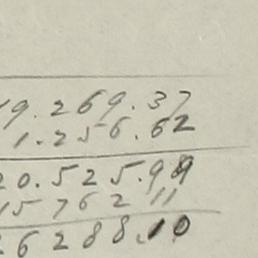 19.269.37
1.256.62
20.525.99
15 762 11
26288.10